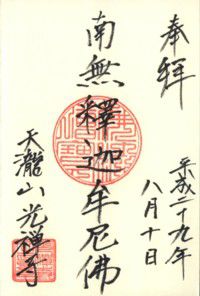 奉拜
平成二十九年
八月十日
南無釋迦牟尼佛
天瀧山光禅寺